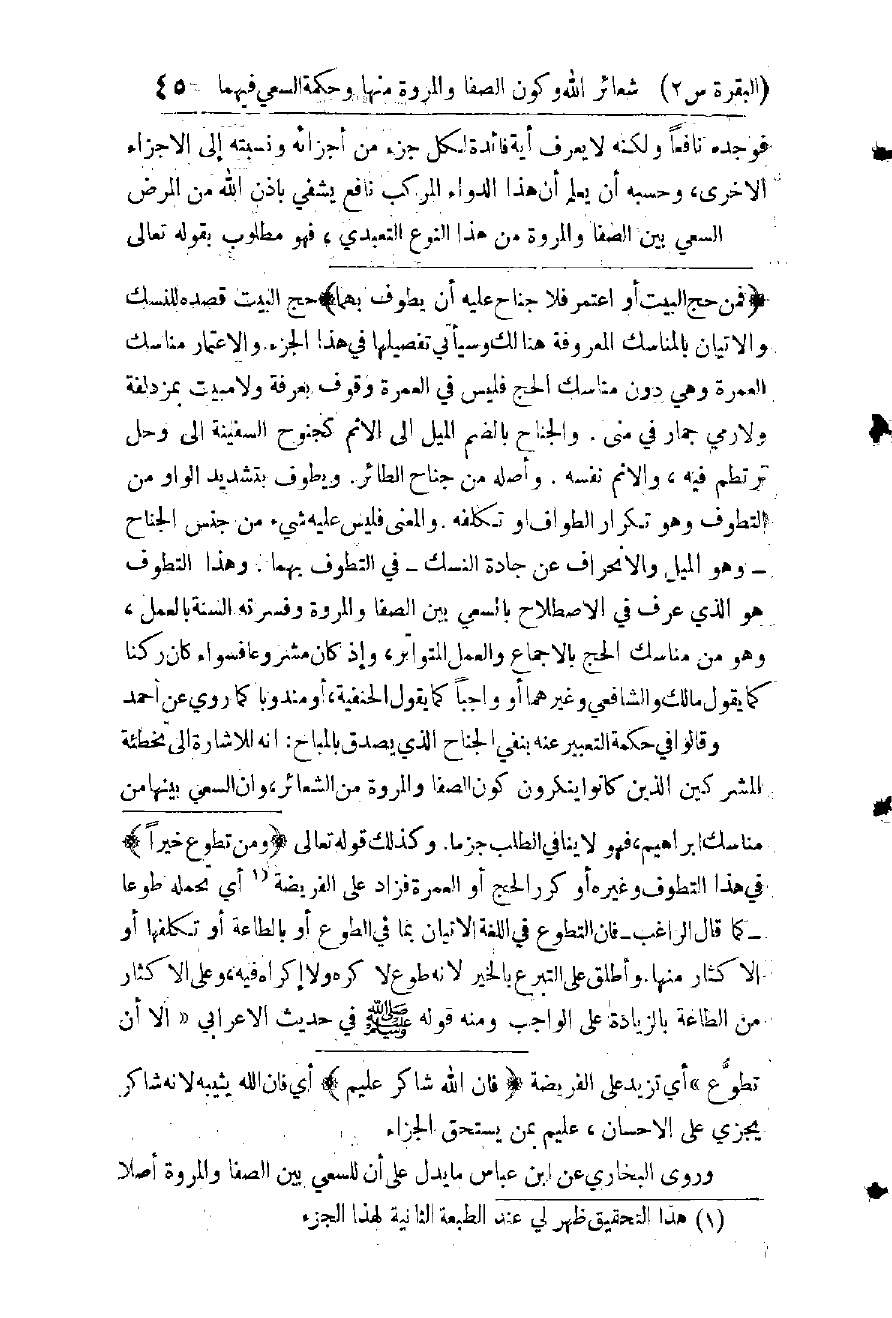 (البقرة س ٢) شعائر الله وكون الصفا والمروة منها وحكمة السعي فيهما ٤٥
فوجده نافعاً ولكنه لا يعرف أية فائدة لكل جزء من أجزائه ونسبته إلى الاجزاء
الاخرى، وحسبه أن يعلم أن هذا الدواء المركب نافع يشفي باذن الله من المرض
السعي بين الصفا والمروة من هذا النوع التعبدي، فهو مطلوب بقوله تعالى
﴿فمن حج البيت أو اعتمر فلا جناح عليه أن يطوف بهما﴾ حج البيت قصده للنسك
والاتيان بالمناسك المعروفة هنالك وسيأتي تفصيلها في هذا الجزء. والاعتمار مناسك
العمرة وهي دون مناسك الحج فليس في العمرة وقوف بعرفة ولا مبيت بمزدلفة
ولا رمي جمار في منى. والجناح بالضم الميل الى الاثم كجنوح السفينة الى وحل
ترتطم فيه، والاثم نفسه. وأصله من جناح الطائر. ويطوف بتشديد الواو من
التطوف وهو تكرار الطواف او تكلفه. والمعنى فليس عليه شيء من جنس الجناح
ـ وهو الميل والانحراف عن جادة النسك ـ في التطوف بهما. وهذا التطوف
هو الذي عرف في الاصطلاح بالسعي بين الصفا والمروة وفسرته السنة بالعمل،
وهو من مناسك الحج بالاجماع والعمل المتواتر، وإذ كان مشروعا فسواء كان ركنا
كما يقول مالك والشافعي وغيرهما أو واجباً كما يقول الحنفية، أو مندوبا كما روي عن أحمد
وقالوا في حكمة التعبير عنه بنفي الجناح الذي يصدق بالمباح: انه للاشارة الى تخطئة
المشركين الذين كانوا ينكرون كون الصفا والمروة من الشعائر، وان السعي بينهما من
مناسك ابراهيم، فهو لا ينافي الطلب جزما. وكذلك قوله تعالى ﴿ومن تطوع خيراً﴾
في هذا التطوف وغيره أو كرر الحج أو العمرة فزاد على الفريضة (١ أي تحمله طوعا
ـ كما قال الراغب ـ فان التطوع في اللغة الاتيان بما في الطوع أو بالطاعة أو تكلفها أو
الاكثار منها. وأطلق على التبرع بالخير لانه طوع لا كره ولا إكراه فيه، وعلى الاكثار
من الطاعة بالزيادة على الواجب ومنه قوله ﷺ في حديث الاعرابي « الا أن
تطوَّع » أي تزيد على الفريضة ﴿فان الله شاكر عليم﴾ أي فان الله يثيبه لانه شاكر
يجزي على الاحسان، عليم بمن يستحق الجزاء
وروى البخاري عن ابن عباس ما يدل على أن للسعي بين الصفا والمروة أصلا
(١) هذا التحقيق ظهر لي عند الطبعة الثانية لهذا الجزء